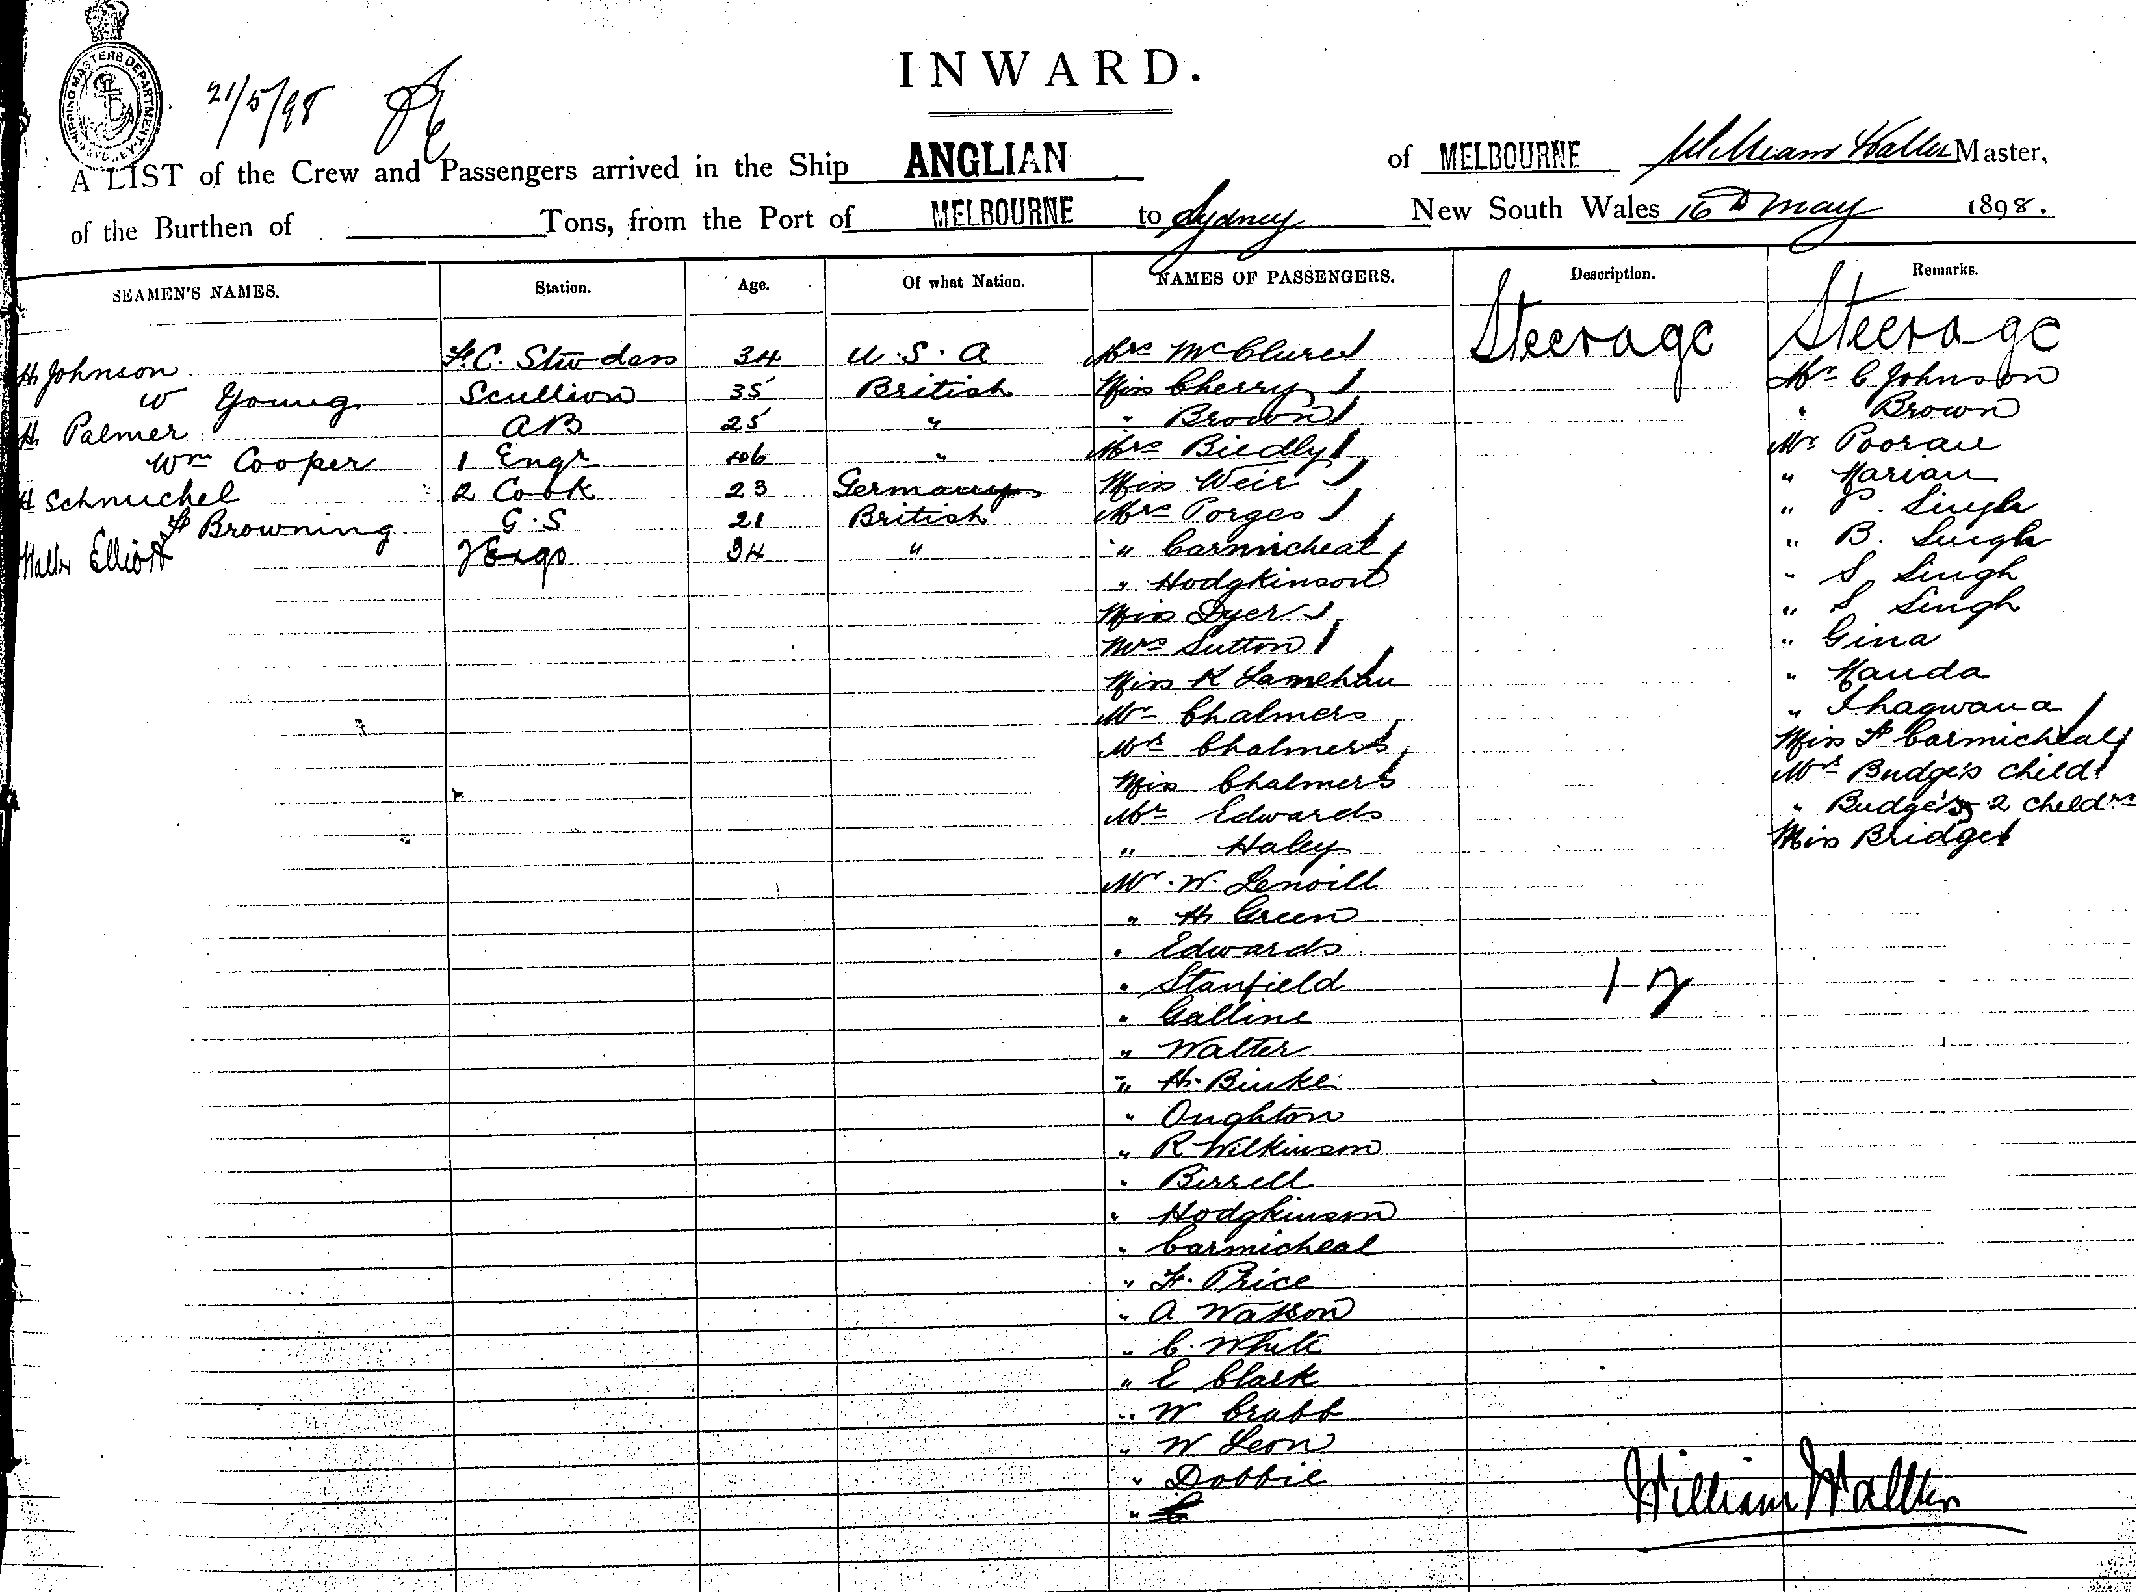 SHIPPING MASTERS DEPARTMENT SYDNEY
21/5/98
INWARD.
A LIST of the Crew and Passengers arrived in the Ship ANGLIAN of MELBOURNE William Waller Master,
of the Burthen of Tons, from the Port of MELBOURNE to Sydney New South Wales 16th May 1898.
SEAMEN'S NAMES. Station. Age. Of what Nation. NAMES OF PASSENGERS. Description. Remarks.
Steerage Steerage
H Johnson F. C. Stwdess 34 U. S. A Mrs McClure
W Young Scullion 35 British Miss Cherry
H Palmer AB 25 " " Brown
Wm Cooper 1 Engr 46 " Mrs Biedly
H Schnuchel 2 Cook 23 Germany Miss Weir
F Browning G. S 21 British Mrs Porges
Walter Elliott 34 " " Carmicheal
" Hodgkinson
Miss Dyer
Mrs Sutton
Miss K Lamehau
Mr Chalmers
Mrs Chalmers
Miss Chalmers
Mr Edwards
" Haley
Mr. W. Lenoill
" H. Green
" Edwards
" Stanfield
" Galline
" Walter
" H. Binke
" Oughton
" R Wilkinson
" Birrell
" Hodgkinson
" Carmicheal
" F. Price
" A Watson
" C. White
" E Clark
" W Crabb
" W Leon
" Dobbie
"
Mr C Johnson
" Brown
Mr Poorau
" Narian
" P. Singh
" B. Singh
" S Singh
" S Singh
" Gina
" Nauda
" Ihagwana
Miss F Carmicheal
Mrs Budge's child
" Budge's 2 childrn
Miss Bridget
17
William Waller